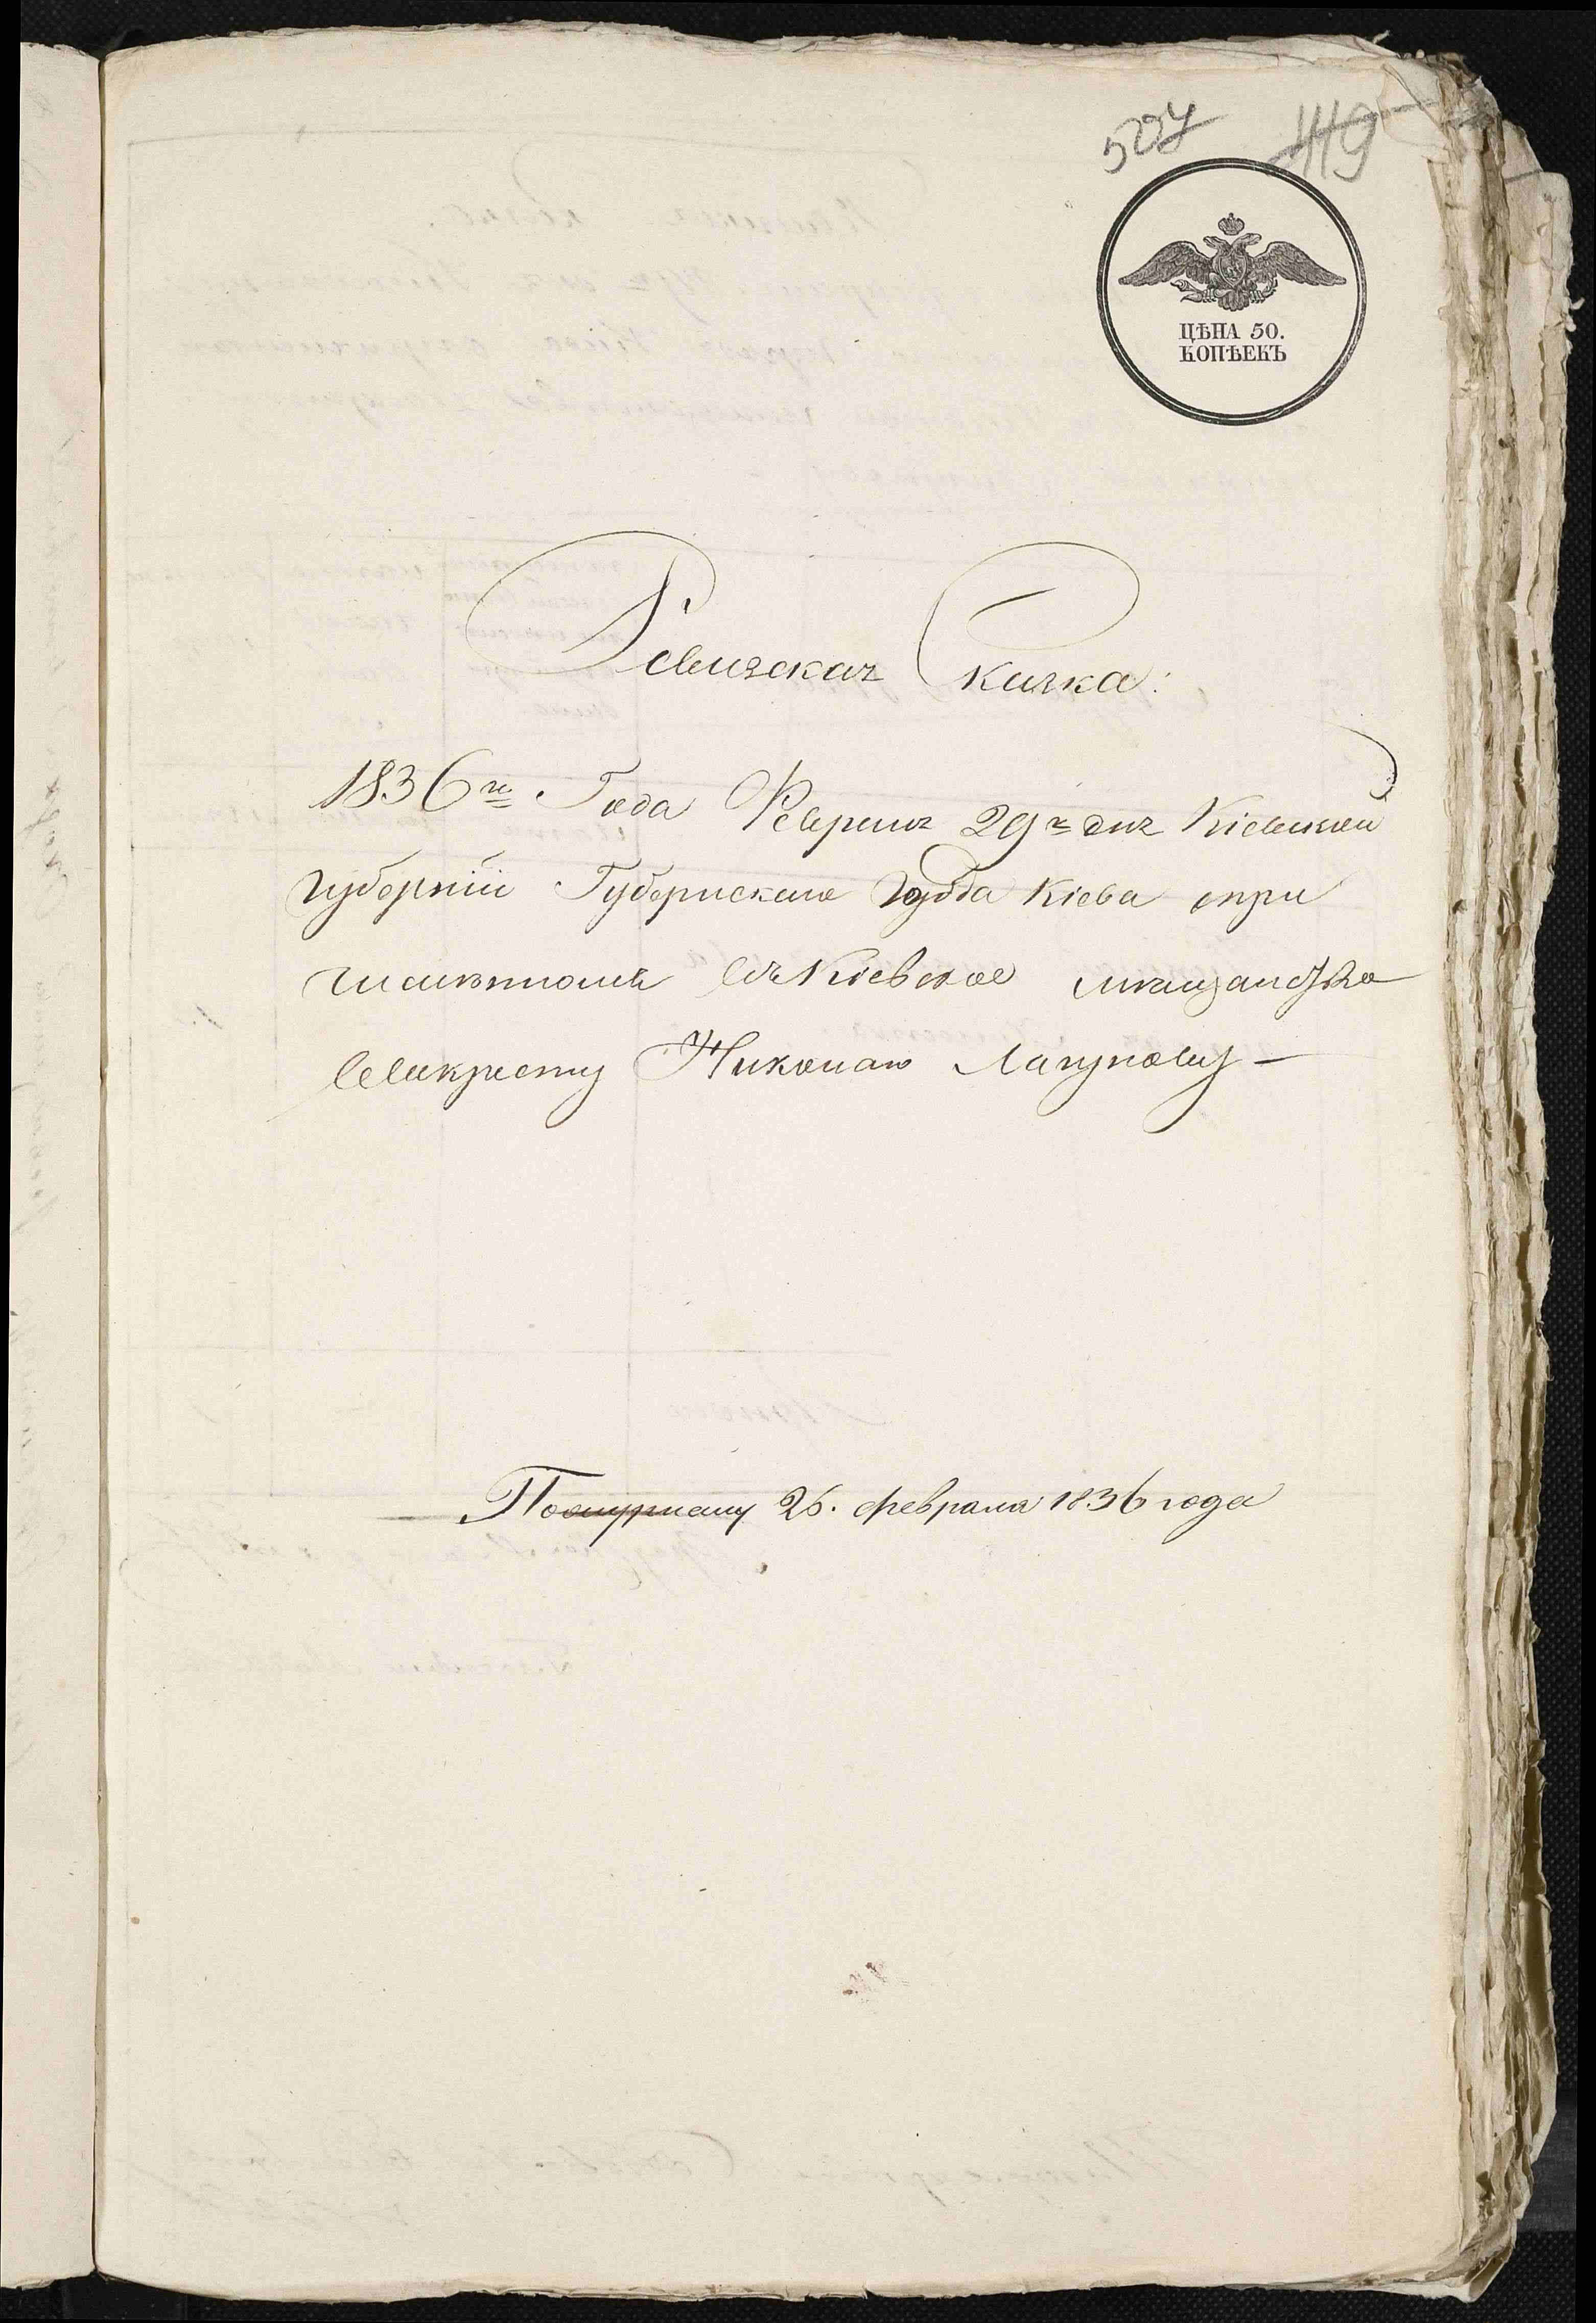 527 449
ЦѢНА 50.
КОПѢЕКЪ
Ревизская Сказка:
1836го Года Февраля 29го дня Кіевской
губерніи Губернскаго города Кіева о при
численномъ въ Кіевское мѣщанство
Евикресту Николаю Лагунову —
26. февраля 1836 года